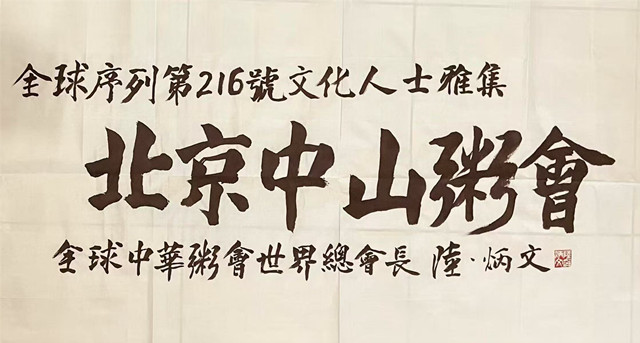 全球序列第216號文化人士雅集
北京中山粥會
全球中華粥會世界總會長 陸·炳文